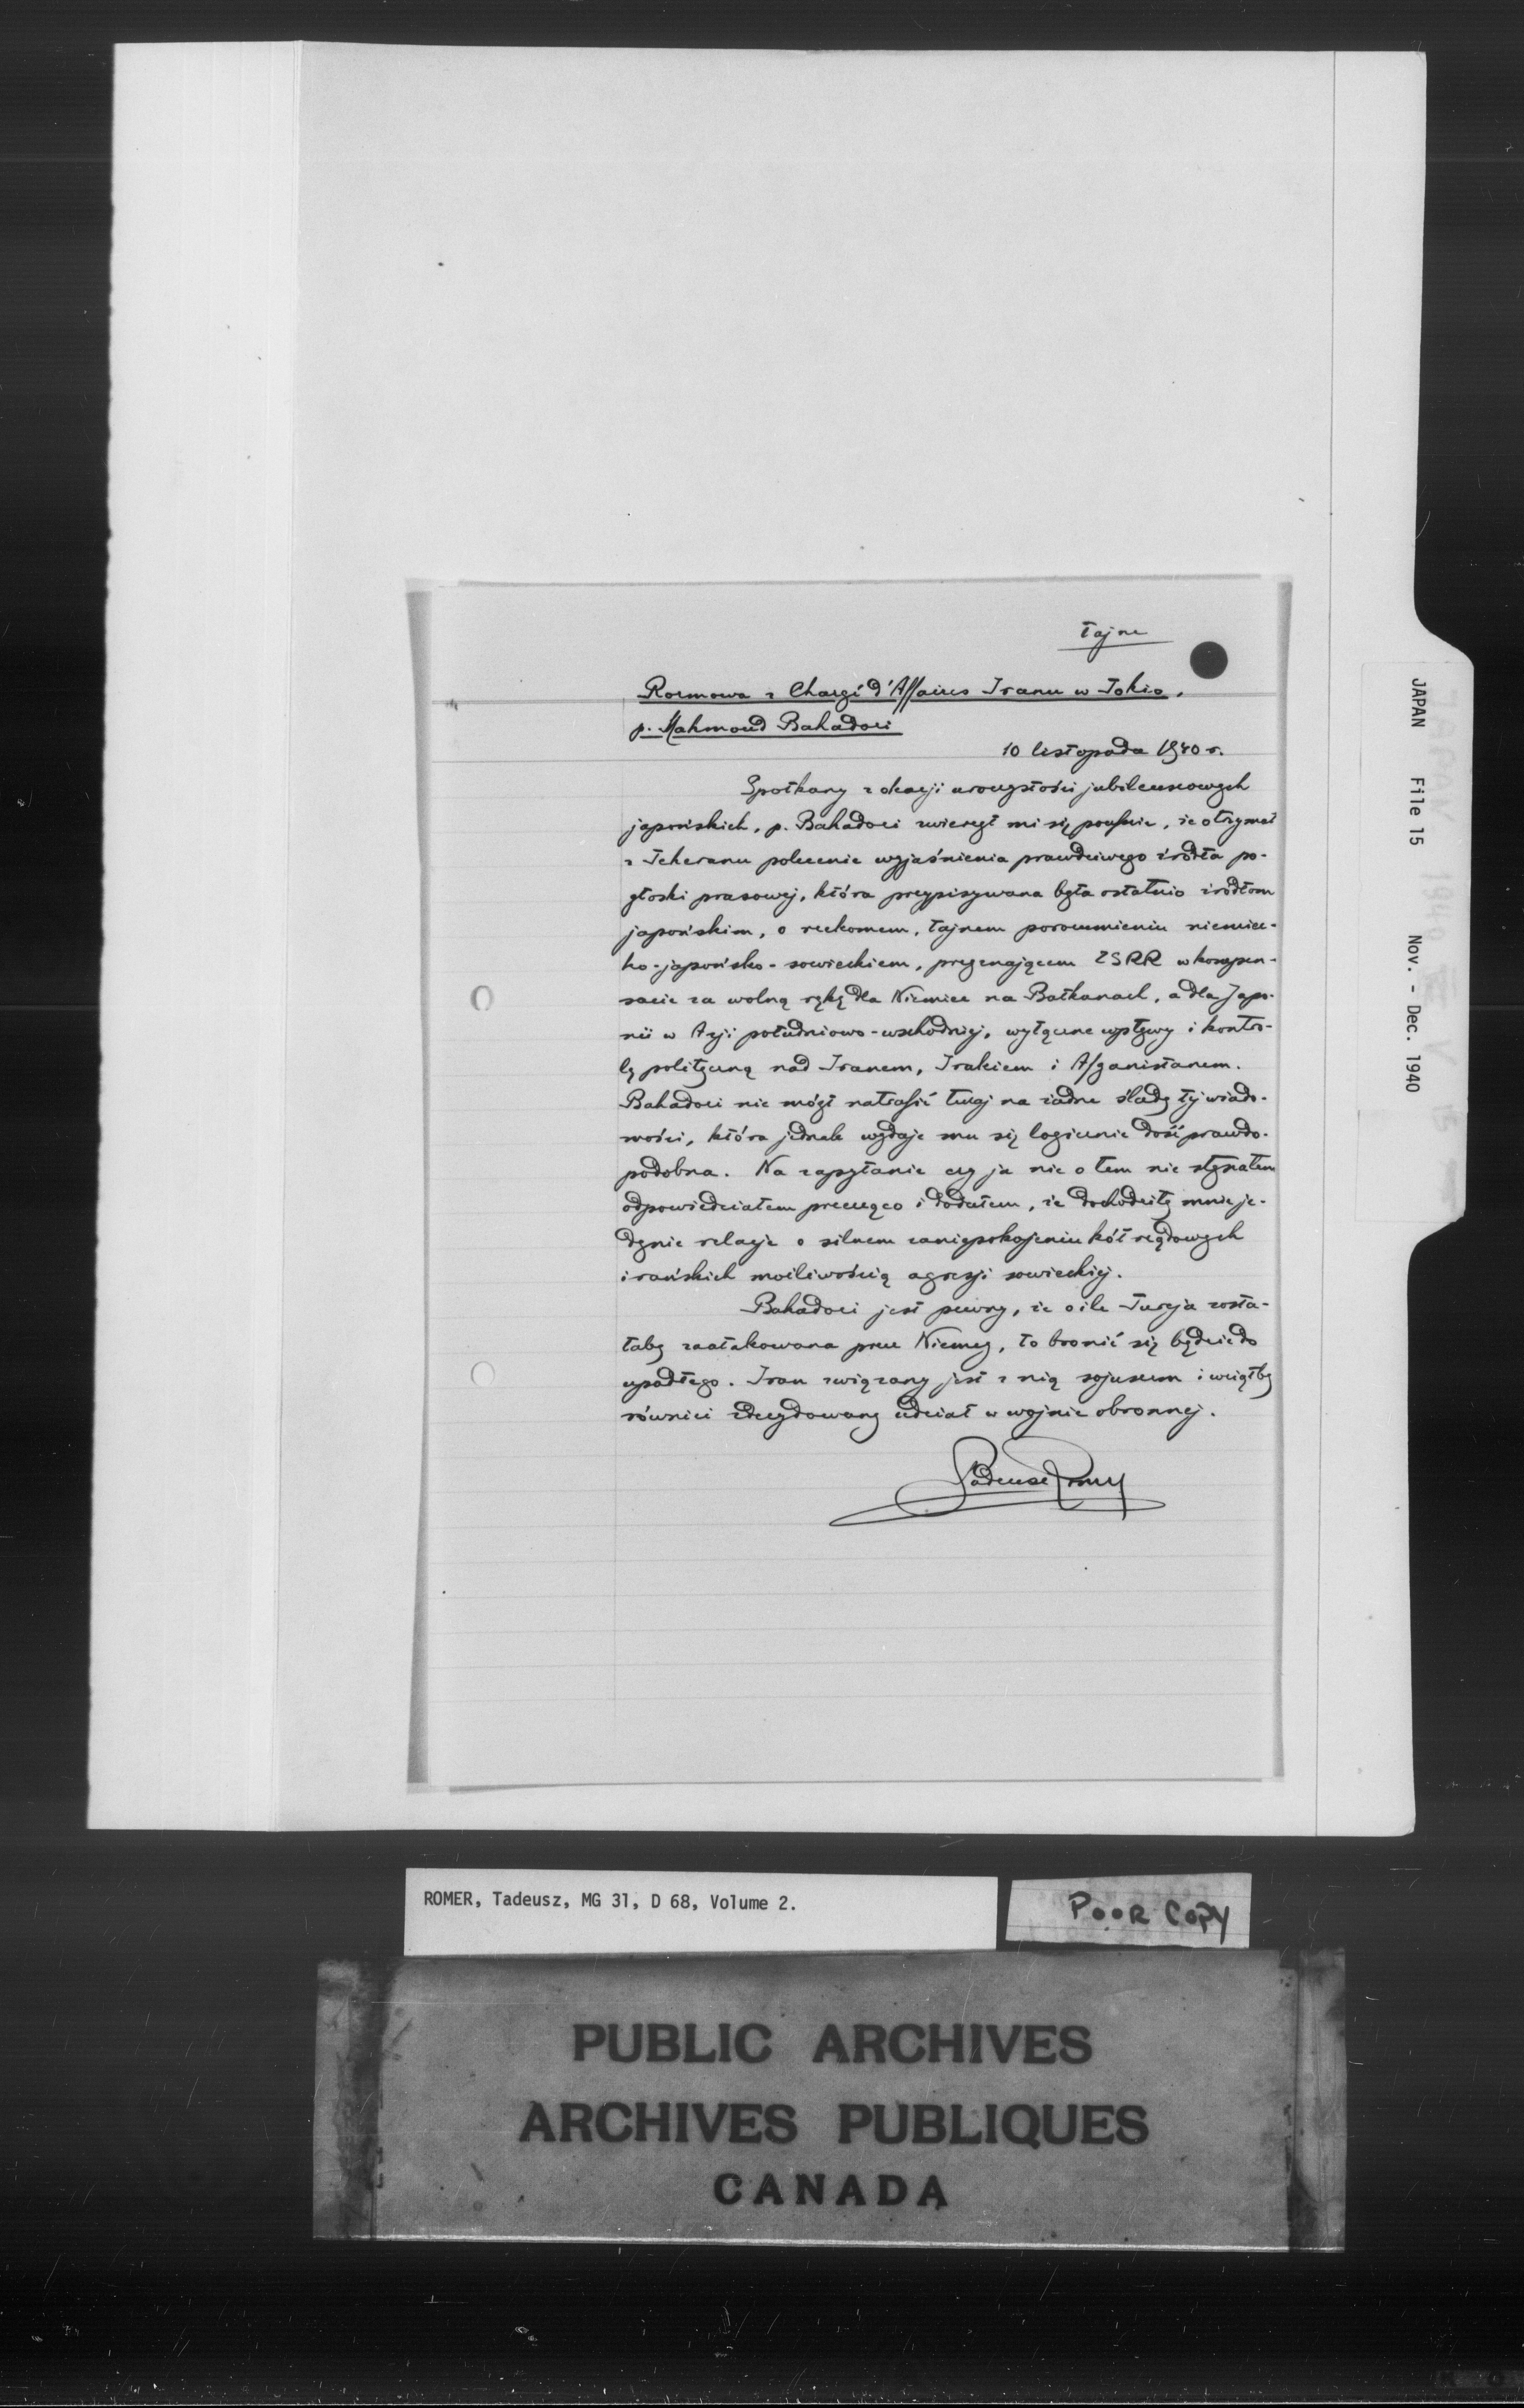 tajne
Rozmowa z Chargé d'Affaires Iranu w Tokio,
p. Mahmoud Bahadori
10 listopada 1940 r.
Spotkany z okazji uroczystości jubileuszowych
japońskich, p. Bahadori zwierzył mi się poufnie, że otrzymał
z Teheranu polecenie wyjaśnienia prawdziwego źródła po-
głoski prasowej, która przypisywana była ostatnio źródłom
japońskim, o rzekomem, tajnem porozumieniu niemiec-
ko-japońsko-sowieckiem, przyznającem ZSRR w kompen-
sacie za wolną rękę dla Niemiec na Bałkanach, a dla Japo-
nii w Azji południowo-wschodniej, wyłączne wpływy i kontro-
lę polityczną nad Iranem, Irakiem i Afganistanem.
Bahadori nie mógł natrafić tutaj na żadne ślady tej wiado-
mości, która jednak wydaje mu się logicznie dość prawdo-
podobna. Na zapytanie czy ja nic o tem nie słyszałem
odpowiedziałem przecząco i dodałem, że dochodziły mnie je-
dynie relacje o silnem zaniepokojeniu kół rządowych
irańskich możliwością agresji sowieckiej.
Bahadori jest pewny, że o ile Turcja zosta-
łaby zaatakowana przez Niemcy, to bronić się będzie do
upadłego. Iran związany jest z nią sojuszem i wziąłby
również zdecydowany udział w wojnie obronnej.
Tadeusz Romer
JAPAN File 15 Nov. - Dec. 1940
ROMER, Tadeusz, MG 31, D 68, Volume 2.
POOR COPY
PUBLIC ARCHIVES
ARCHIVES PUBLIQUES
CANADA